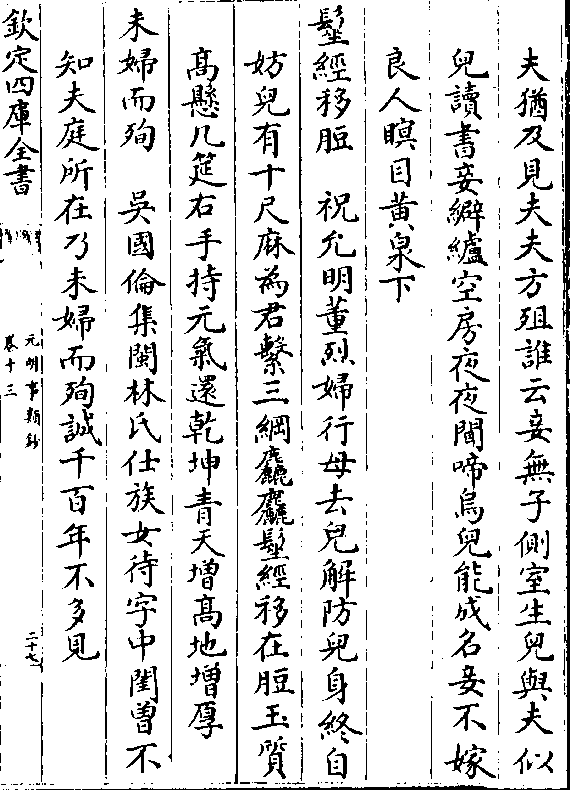 夫猶及見夫夫方殂誰云妾無子側室生兒與夫似
兒讀書妾緶纑空房夜夜聞啼烏兒能成名妾不嫁
良人瞑目黃泉下
髽經移脰　祝允明董烈婦行母去兒解防兒身終自
妨兒有十尺麻為君繫三綱麤麤髽經移在脰玉質
高懸几筵右手持元氣還乾坤青天增高地增厚
未婦而殉　吳國倫集閩林氏仕族女待字中閨曽不
知夫庭所在乃未婦而殉誠千百年不多見
欽定四庫全書
元明事類鈔
卷十三
二十七